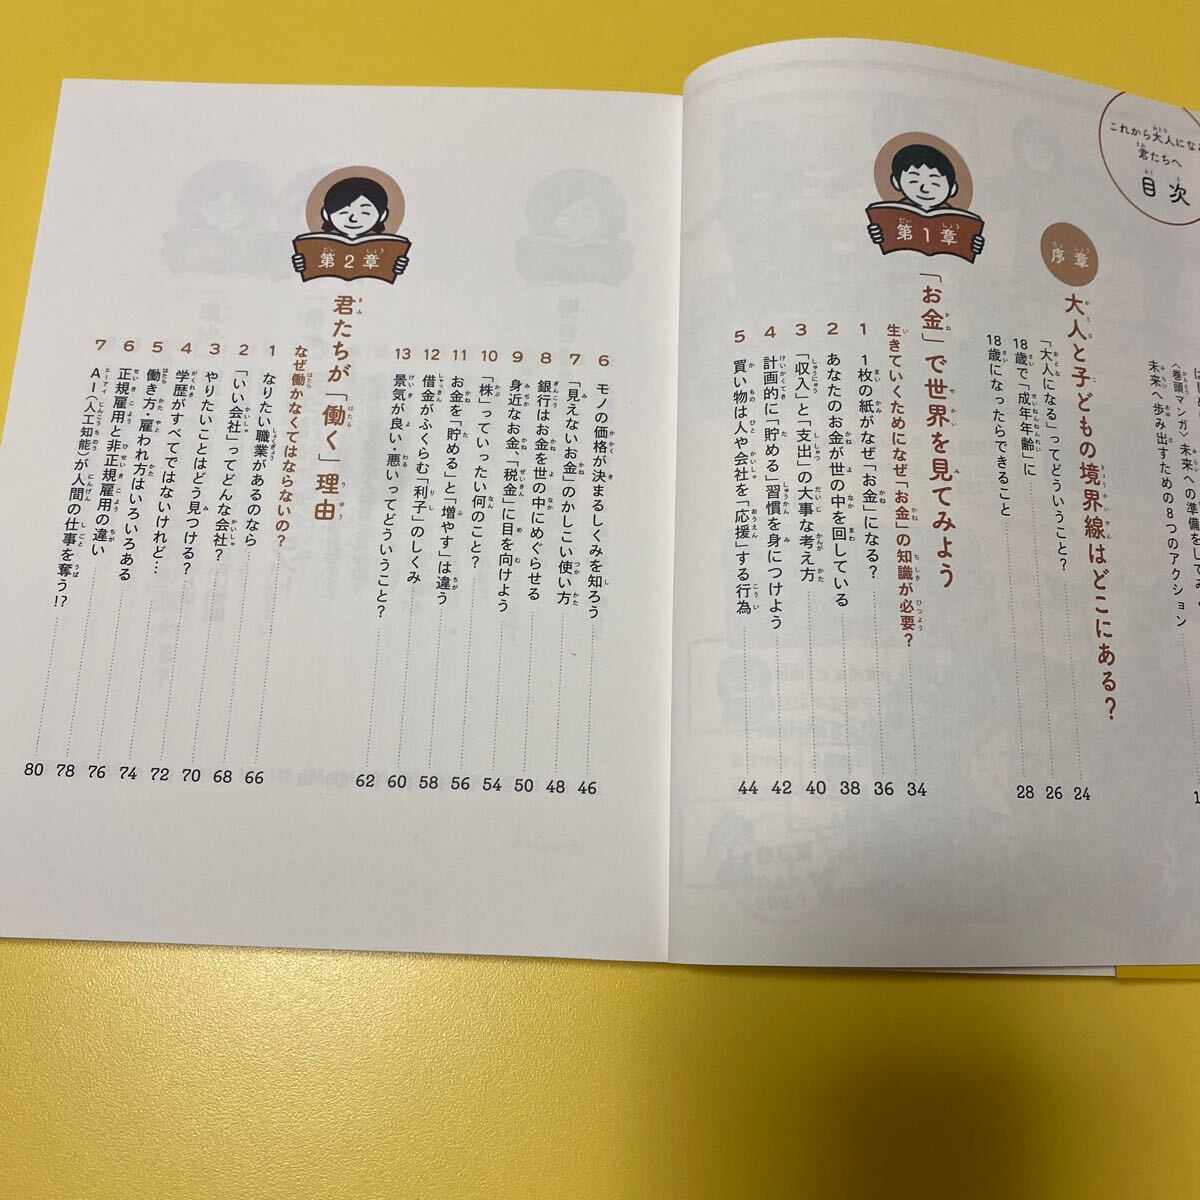 これから大人にな
君たちへ
目次
〈巻頭マンガ〉未来への準備をしてみ
未来へ歩み出すための8つのアクション
序章
大人と子どもの境界線はどこにある？
「大人になる」ってどういうこと？ 24
18歳で「成年年齢」に 26
18歳になったらできること 28
第1章
「お金」で世界を見てみよう
生きていくためになぜ「お金」の知識が必要？ 34
1 1枚の紙がなぜ「お金」になる？ 36
2 あなたのお金が世の中を回している 38
3 「収入」と「支出」の大事な考え方 40
4 計画的に「貯める」習慣を身につけよう 42
5 買い物は人や会社を「応援」する行為 44
6 モノの価格が決まるしくみを知ろう 46
7 「見えないお金」のかしこい使い方 48
8 銀行はお金を世の中にめぐらせる 50
9 身近なお金、「税金」に目を向けよう 54
10 「株」っていったい何のこと？ 56
11 お金を「貯める」と「増やす」は違う 58
12 借金がふくらむ「利子」のしくみ 60
13 景気が良い・悪いってどういうこと？ 62
第2章
君たちが「働く」理由
なぜ働かなくてはならないの？ 66
1 なりたい職業があるのなら 68
2 「いい会社」ってどんな会社？ 70
3 やりたいことはどう見つける？ 72
4 学歴がすべてではないけれど… 74
5 働き方・雇われ方はいろいろある 76
6 正規雇用と非正規雇用の違い 78
7 AI（人工知能）が人間の仕事を奪う!? 80